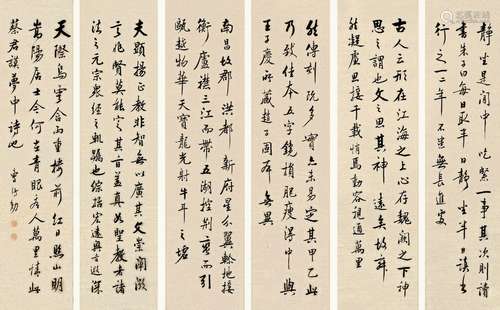 靜坐是一事其次則讀
書朱子曰每日取半日靜坐半日讀書
行之一二年不患無長進處
古人云形在江海之上心存魏闕之下神
思之謂也文之思其神遠矣故寂
然凝慮思接千載悄焉動容視通萬里
然傳刻既多實亦未易定其甲乙此
乃致佳本五字鐫損肥瘦得中與
王子慶所藏趙子固本無異
南昌故郡洪都新府星分翼軫地接
衡廬襟三江而帶五湖控荊蠻而引
甌越物華天寶龍光射牛斗之墟
夫顯揚正教非智無以廣其文崇闡微
言非賢莫能定其旨蓋真如聖教者諸
法之元宗眾經之軌躅也綜括宏遠奧旨遐深
天際烏雲含雨重樓前紅日照山明
嵩陽居士今何在青眼看人萬里情此
蔡君謨夢中詩也